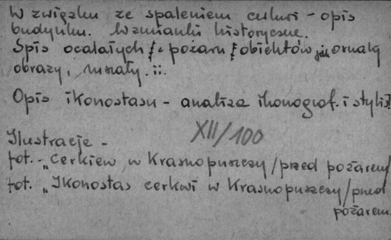 W związku ze spaleniem cerkwi - opis
budynku. Wzmianki historyczne.
Spis ocalałych z pożaru obiektów jak ornaty
obrazy, ....
Opis ikonostasu - analiza ikonograf. i stylist
XII/100
Ilustracje -
fot. - "Cerkiew w Krasnopuszczy /przed pożarem/
fot. "Ikonostas cerkwi w Krasnopuszczy /przed
pożarem